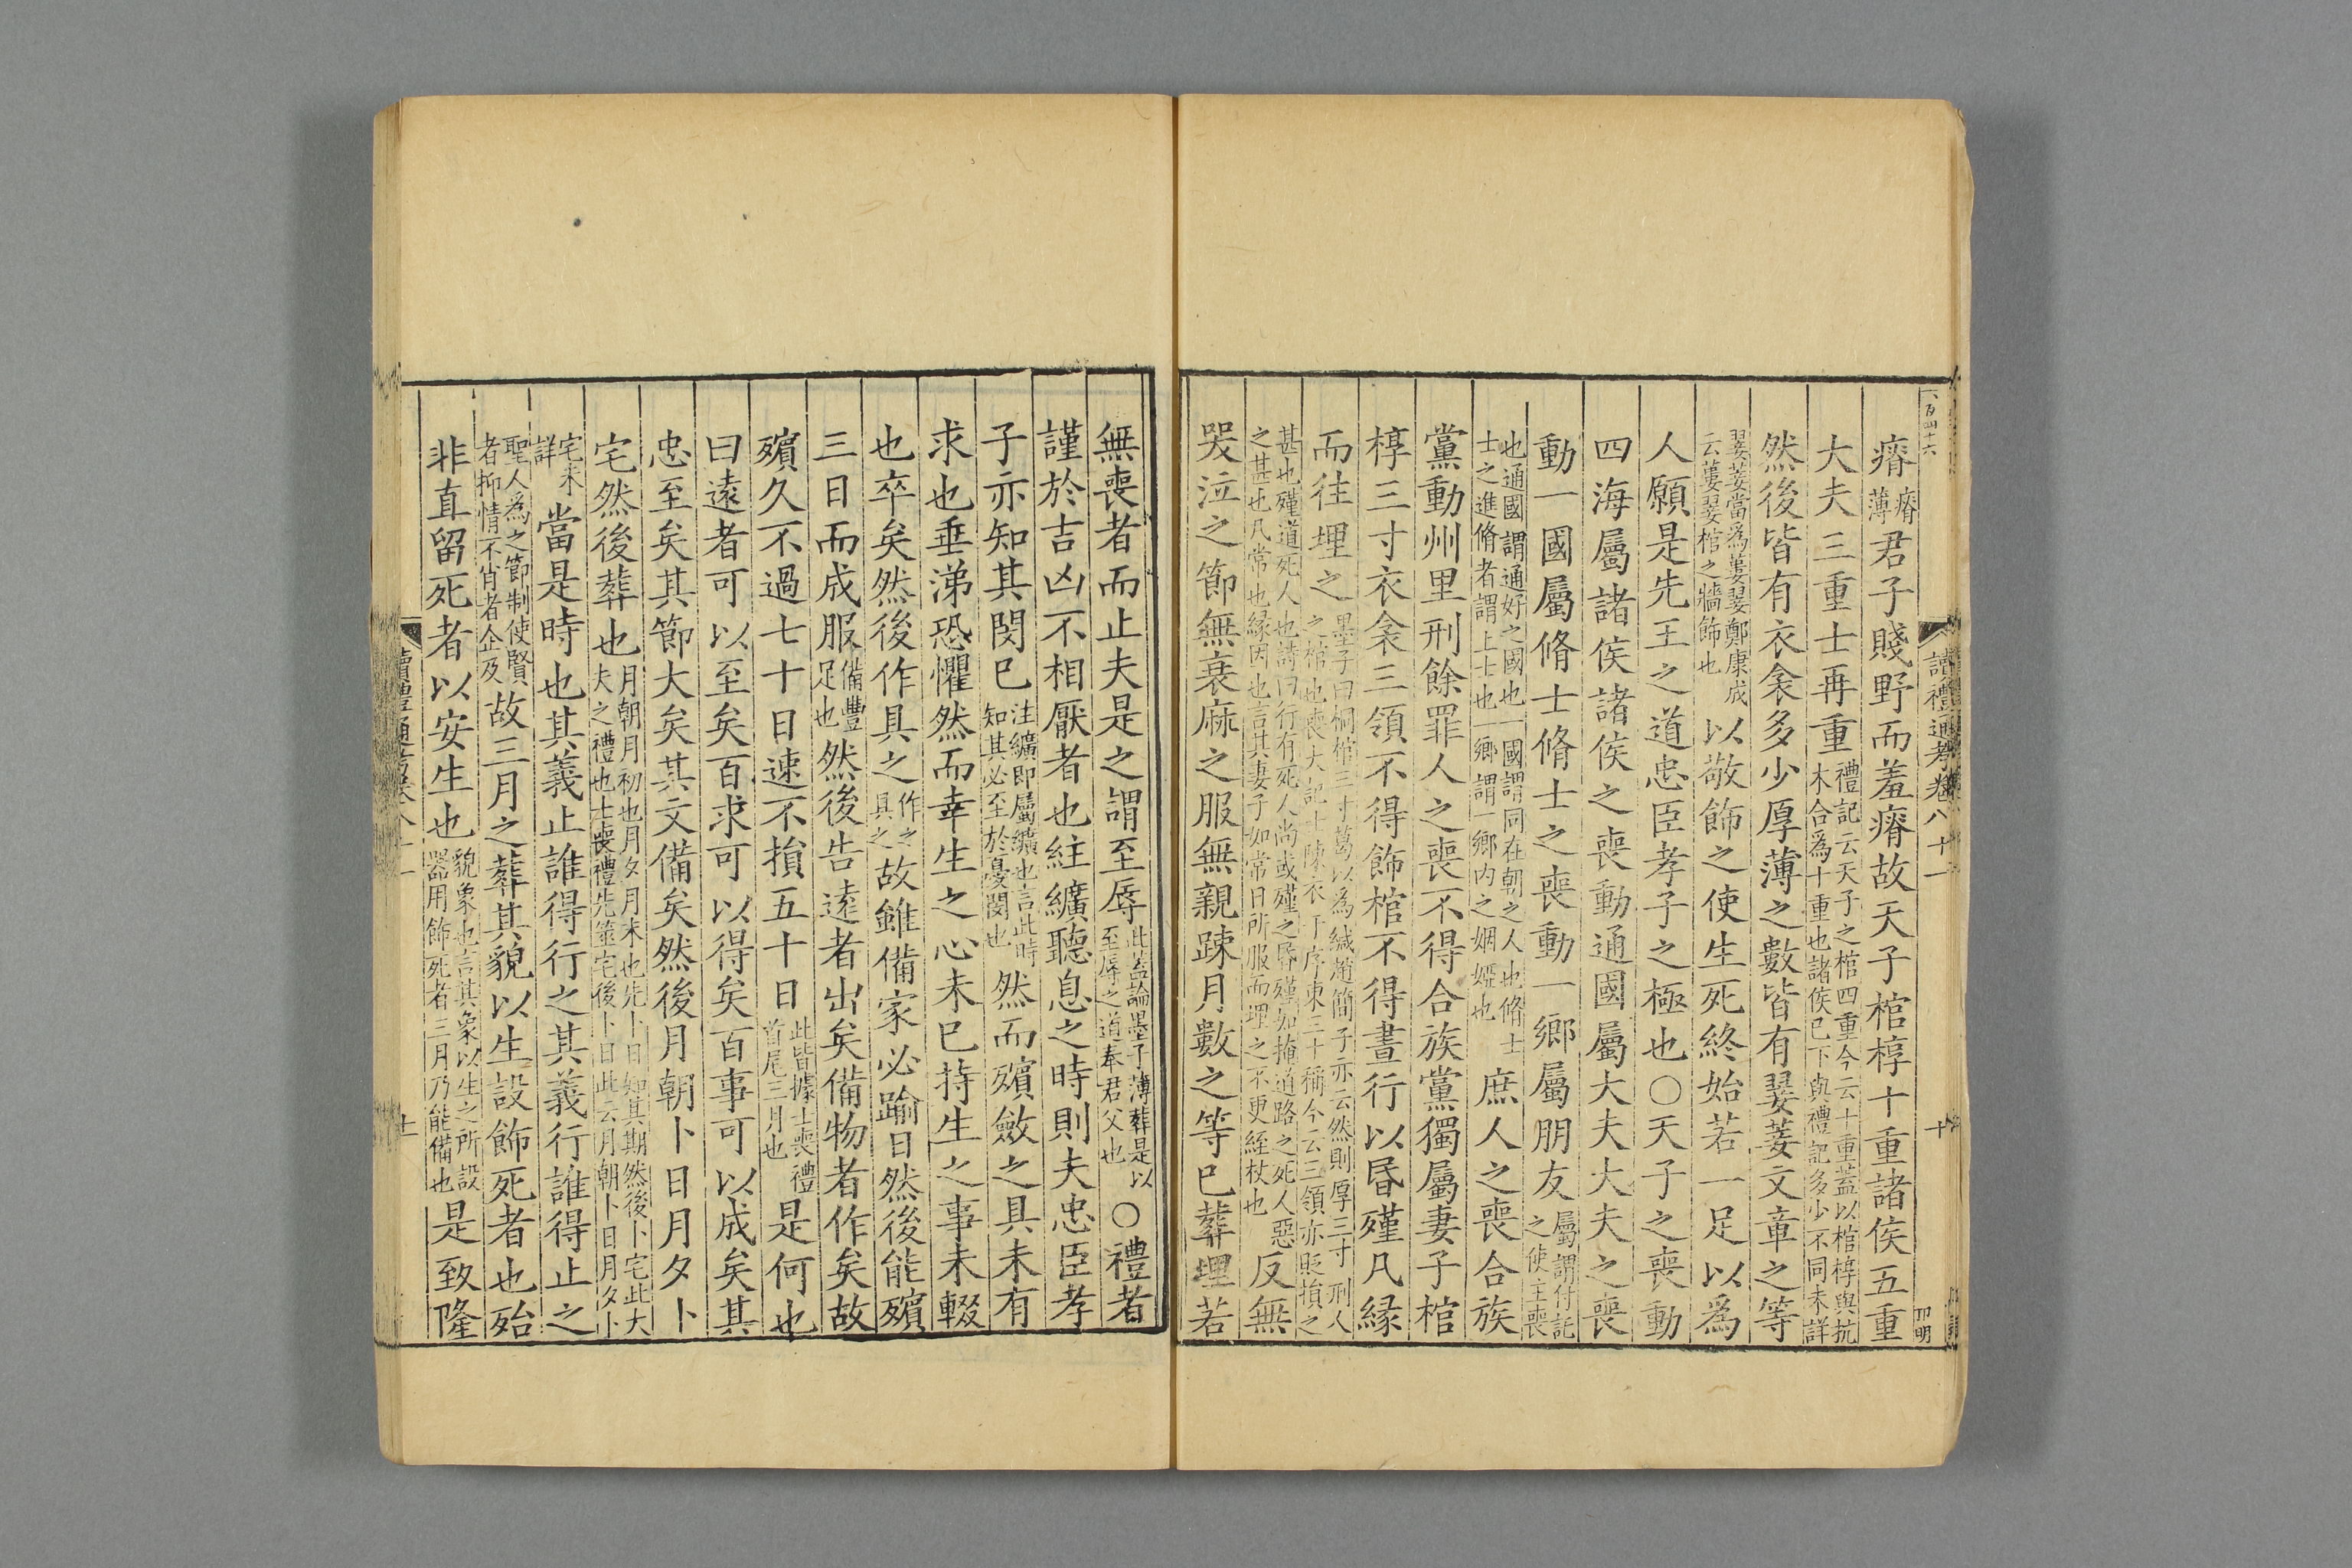 六百四十六
讀禮通考卷八十一
十
瘠瘠薄君子賤野而羞瘠故天子棺椁十重諸侯五重
大夫三重士再重禮記云天子之棺四重今云十重蓋以棺椁與抗木合爲十重也諸侯已下與禮記多少不同未詳
然後皆有衣衾多少厚薄之數皆有翣菨文章之等
翣菨當爲蔞翣鄭康成云蔞翣棺之牆飾也以敬飾之使生死終始若一足以爲
人願是先王之道忠臣孝子之極也○天子之喪動
四海屬諸侯諸侯之喪動通國屬大夫大夫之喪
動一國屬脩士脩士之喪動一鄉屬朋友屬謂付託之使主喪
也通國謂通好之國也一國謂同在朝之人也脩士士之進脩者謂上士也一鄉謂一鄉內之姻婭也庶人之喪合族
黨動州里刑餘罪人之喪不得合族黨獨屬妻子棺
椁三寸衣衾三領不得飾棺不得晝行以昏殣凡緣
而往埋之墨子曰桐棺三寸葛以爲緘趙簡子亦云然則厚三寸刑人之棺也喪大記士陳衣于序東三十稱今云三領亦貶損之
甚也殣道死人也詩曰行有死人尚或殣之昏殣如掩道路之死人惡之甚也凡常也緣因也言其妻子如常日所服而埋之不更絰杖也反無
哭泣之節無衰麻之服無親踈月數之等已葬埋若
無喪者而止夫是之謂至辱此蓋論墨子薄葬是以至辱之道奉君父也○禮者
謹於吉凶不相厭者也紸纊聽息之時則夫忠臣孝
子亦知其閔已注纊即屬纊也言此時知其必至於憂閔也然而殯斂之具未有
求也垂涕恐懼然而幸生之心未已持生之事未輟
也卒矣然後作具之作之具之故雖備家必踰日然後能殯
三日而成服備豐足也然後告遠者出矣備物者作矣故
殯久不過七十日速不損五十日此皆據士喪禮首尾三月也是何也
曰遠者可以至矣百求可以得矣百事可以成矣其
忠至矣其節大矣其文備矣然後月朝卜日月夕卜
宅然後葬也月朝月初也月夕月末也先卜日知其期然後卜宅此大夫之禮也士喪禮先筮宅後卜日此云月朝卜日月夕卜
宅未詳當是時也其義止誰得行之其義行誰得止之
聖人爲之節制使賢者抑情不肖者企及故三月之葬其貌以生設飾死者也殆
非直留死者以安生也貌象也言其象以生之所設器用飾死者三月乃能備也是致隆